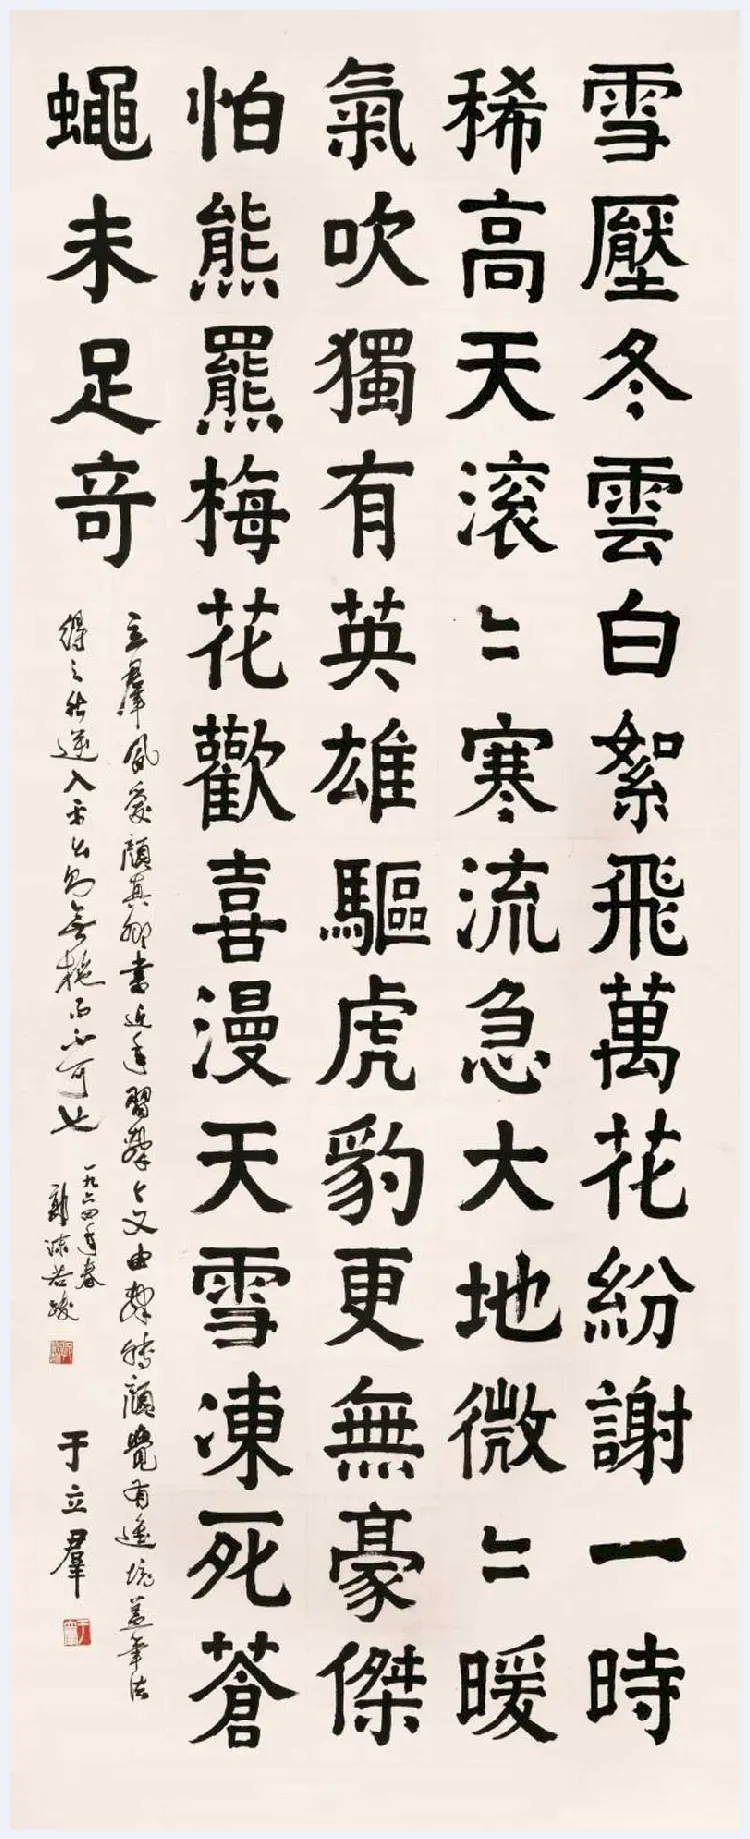 雪壓冬雲白絮飛萬花紛謝一時
稀高天滾〻寒流急大地微〻暖
氣吹獨有英雄驅虎豹更無豪傑
怕熊羆梅花歡喜漫天雪凍死蒼
蠅未足奇
立羣夙愛顏真卿書近年習文由轉顏覺有進境蓋筆法
得之逆入平出無施而不可也
一九六四年春
郭沫若跋
于立羣